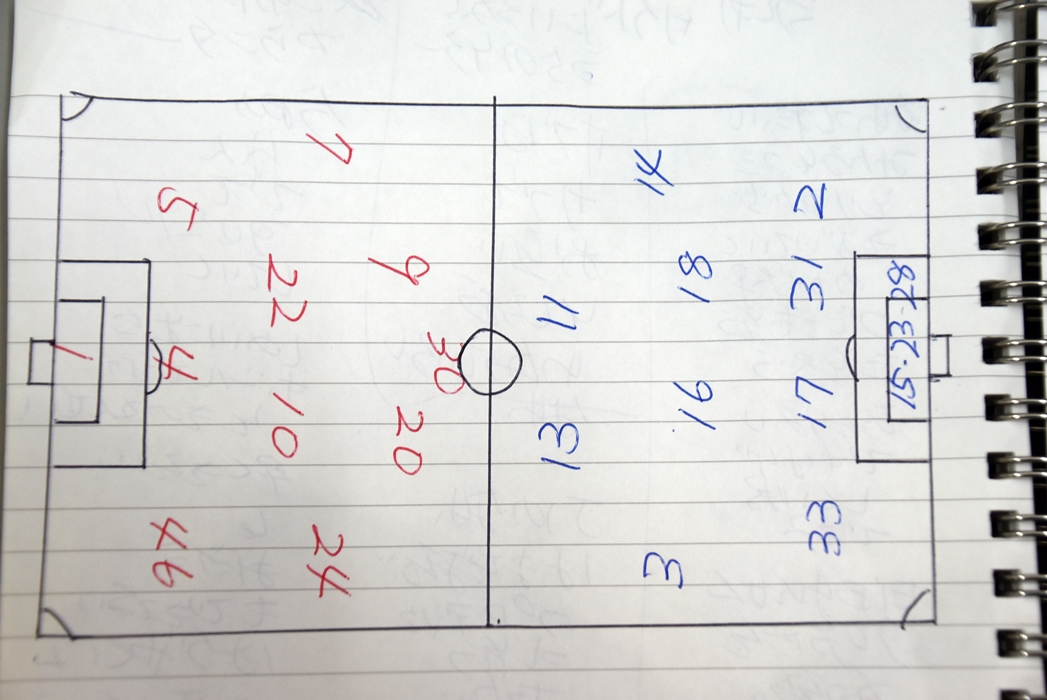 7
5
9
22
30
1
4
10
20
24
46
14
2
18
31
11
15·23·28
16
17
13
33
3